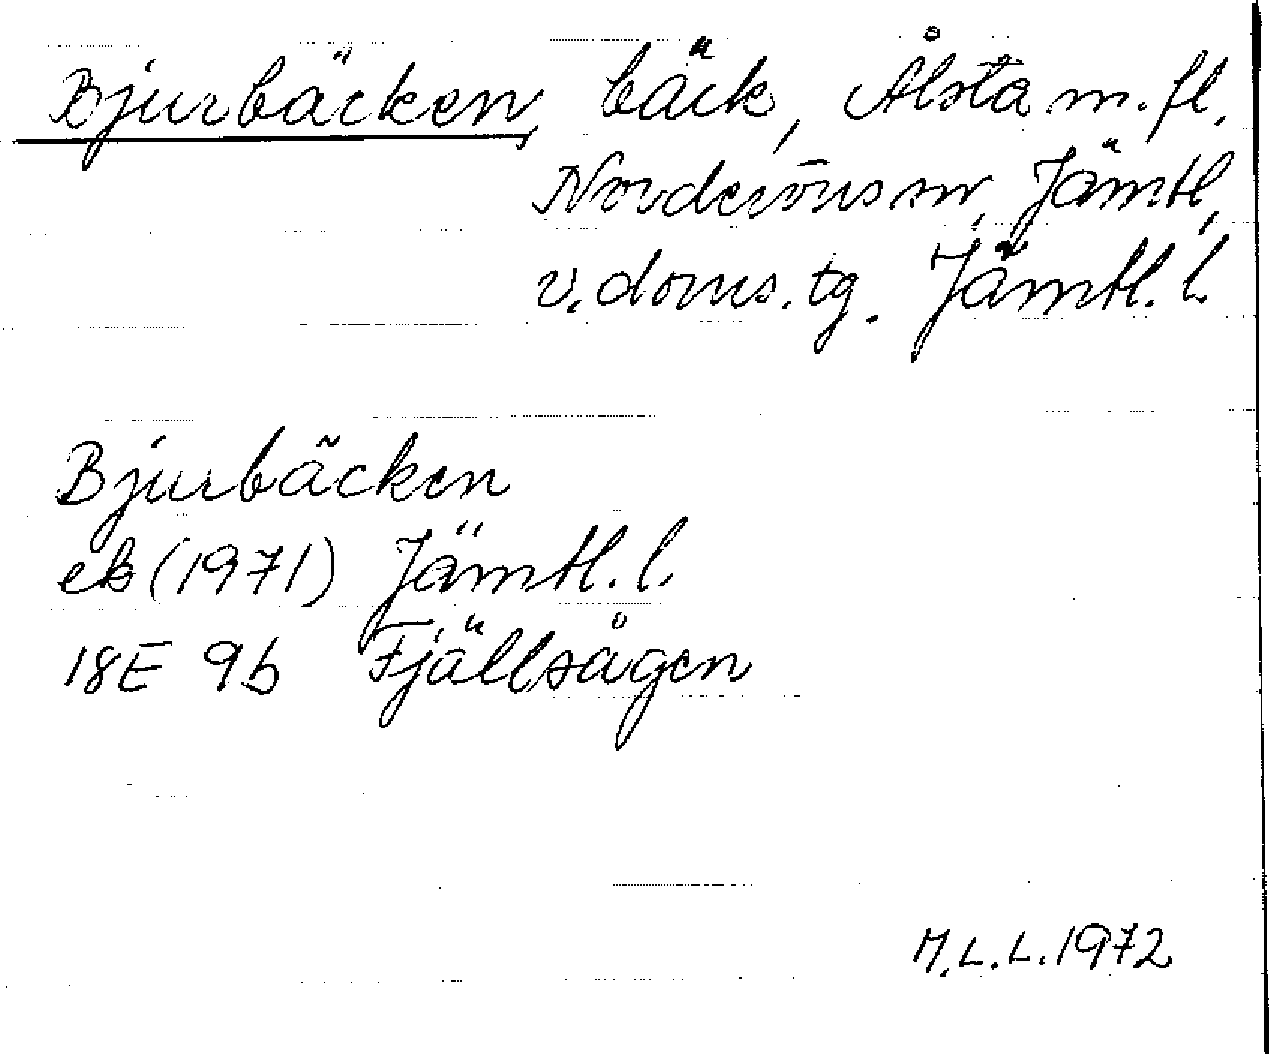 Bjurbäcken, bäck, Ålsta m. fl.
Norderöns sn, Jämtl,
v. doms. tg. Jämtl. l.
Bjurbäcken
ek (1971) Jämtl. l.
18E 9b Fjällsågen
M.L.L. 1972